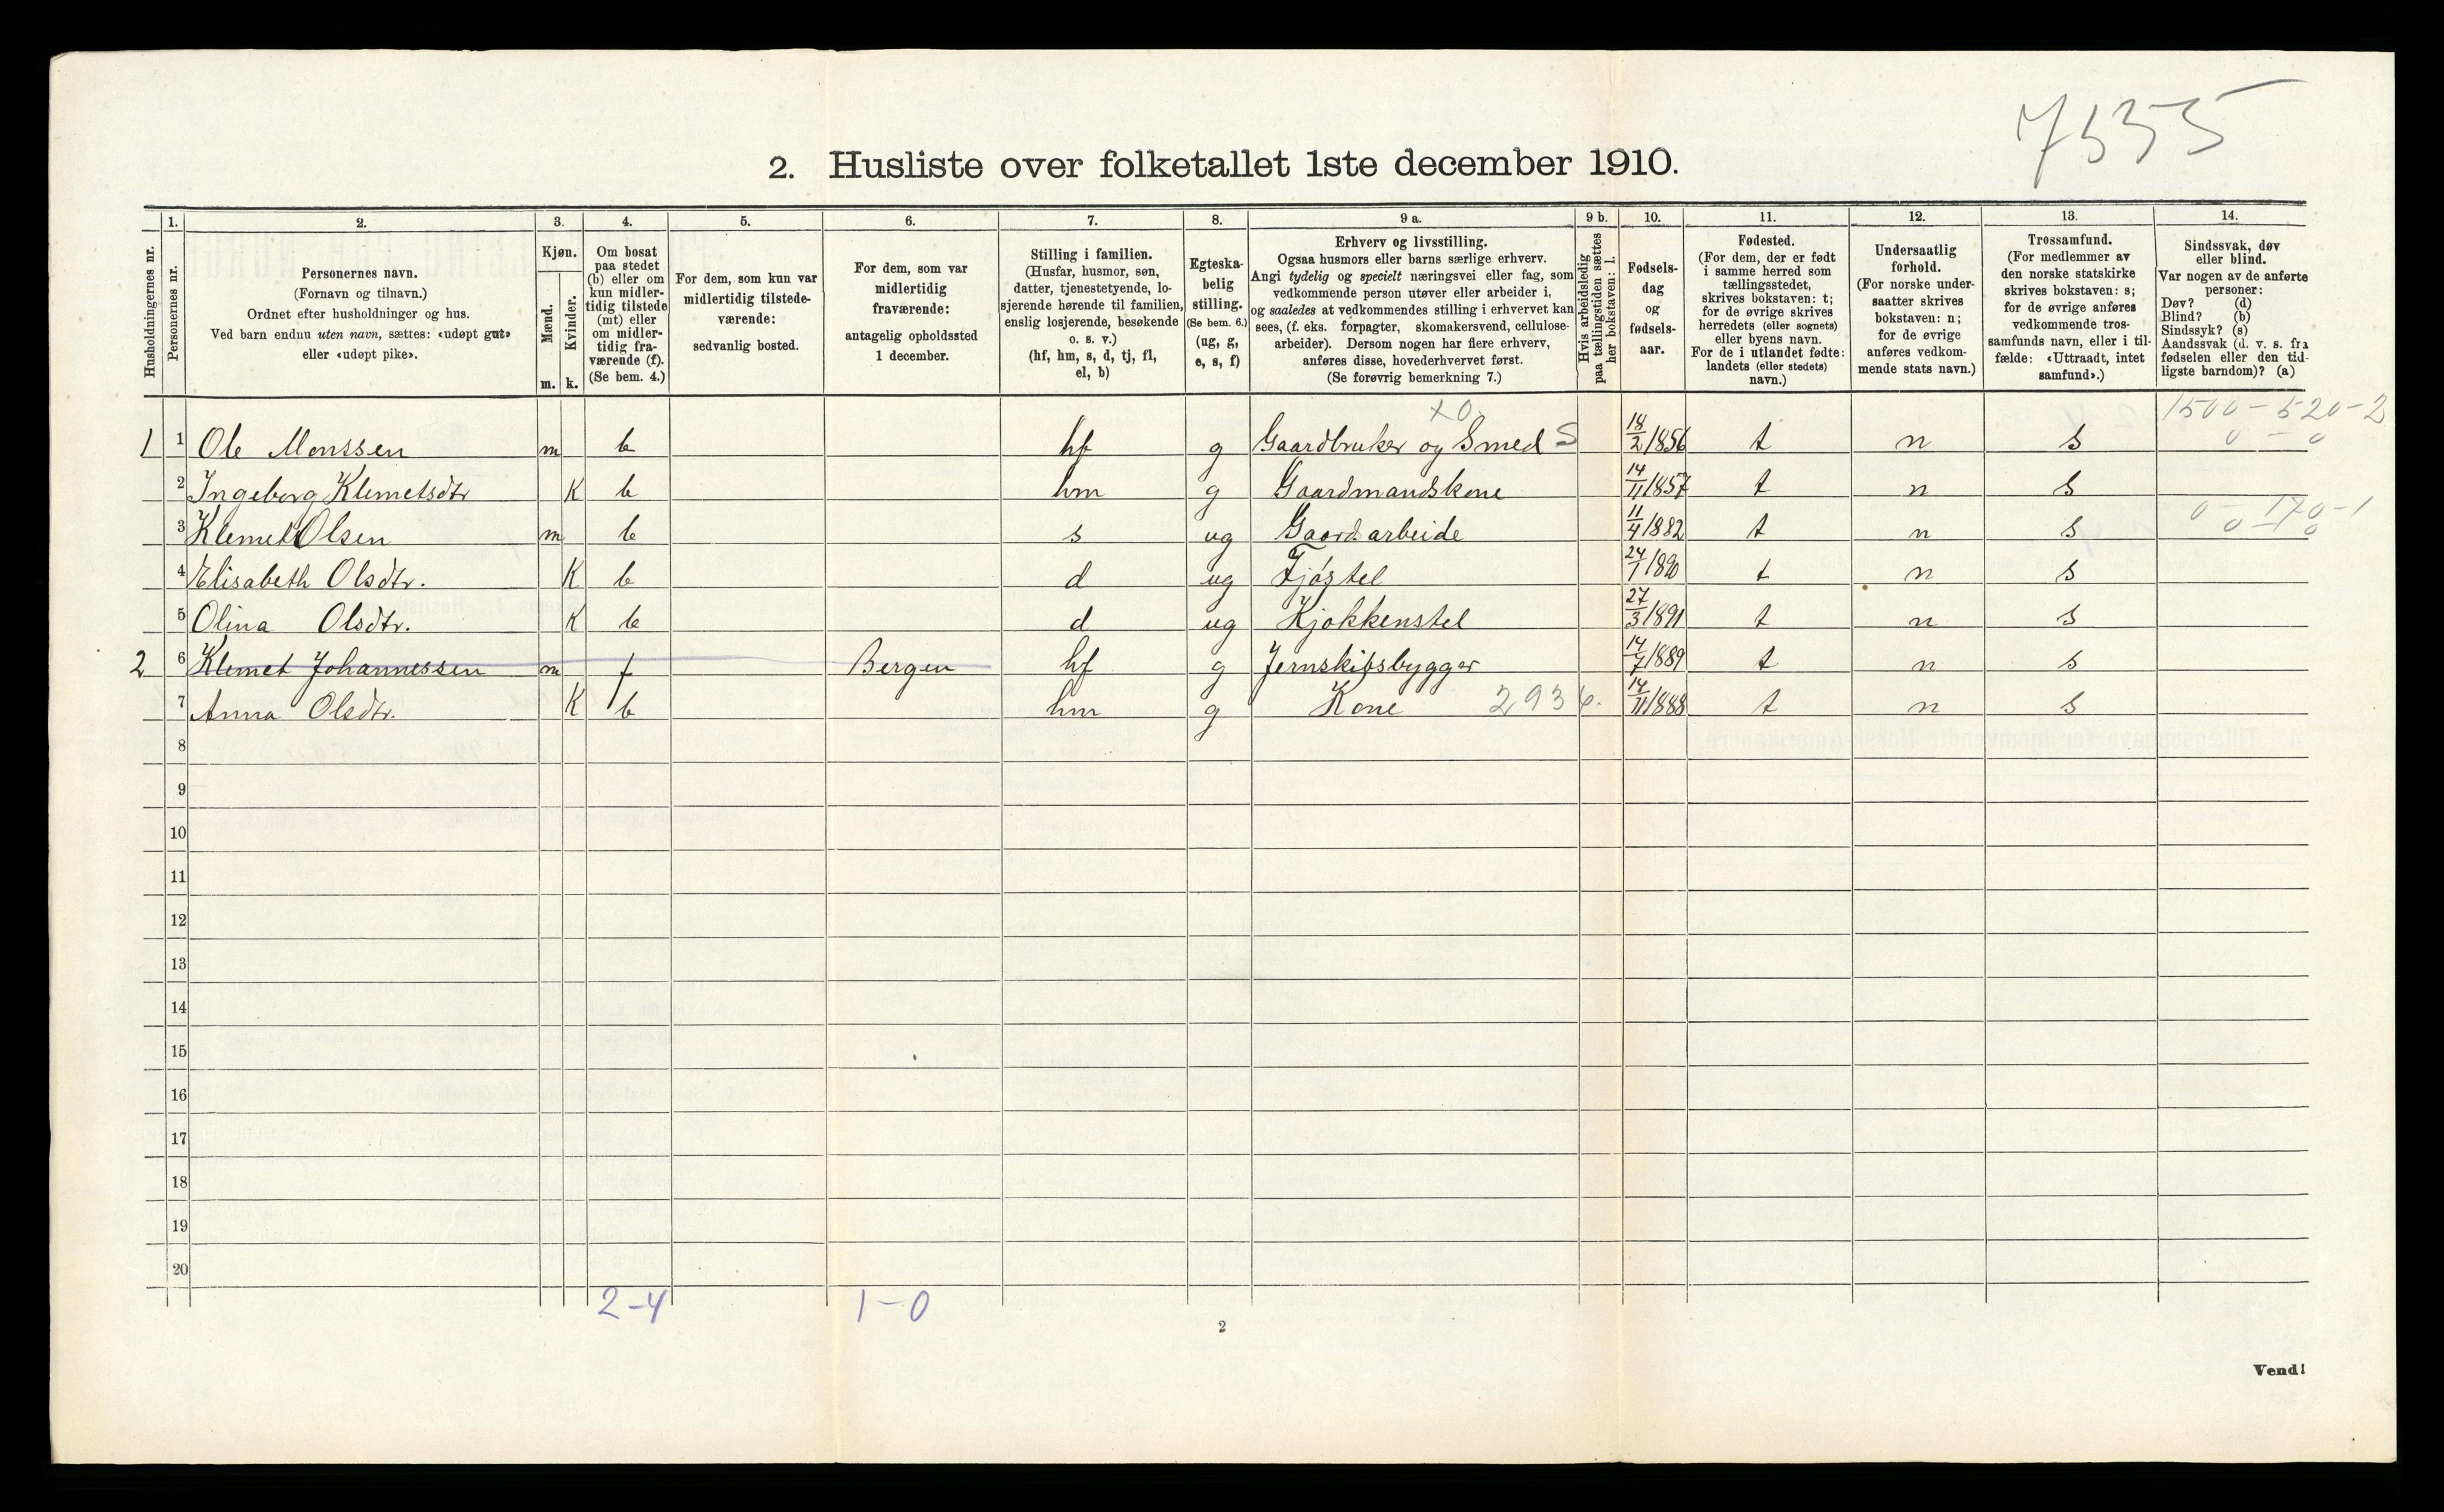 7535
2. Husliste over folketallet 1ste december 1910.
Husholdningernes nr.
1. Personernes nr.
2. Personernes navn.
(Fornavn og tilnavn.)
Ordnet efter husholdninger og hus.
Ved barn endnu uten navn, sættes: «udøpt gut»
eller «udøpt pike».
3. Kjøn.
Mænd. m.
Kvinder. k.
4. Om bosat
paa stedet
(b) eller om
kun midler-
tidig tilstede
(mt) eller
om midler-
tidig fra-
værende (f).
(Se bem. 4.)
5. For dem, som kun var
midlertidig tilstede-
værende:
sedvanlig bosted.
6. For dem, som var
midlertidig
fraværende:
antagelig opholdssted
1 december.
7. Stilling i familien.
(Husfar, husmor, søn,
datter, tjenestetyende, lo-
sjerende hørende til familien,
enslig losjerende, besøkende
o. s. v.)
(hf, hm, s, d, tj, fl,
el, b)
8. Egteska-
belig
stilling.
(Se bem. 6.)
(ug, g,
e, s, f)
9 a. Erhverv og livsstilling.
Ogsaa husmors eller barns særlige erhverv.
Angi tydelig og specielt næringsvei eller fag, som
vedkommende person utøver eller arbeider i,
og saaledes at vedkommendes stilling i erhvervet kan
sees, (f. eks. forpagter, skomakersvend, cellulose-
arbeider). Dersom nogen har flere erhverv,
anføres disse, hovederhvervet først.
(Se forøvrig bemerkning 7.)
9 b. Hvis arbeidsledig
paa tællingstiden sættes
her bokstaven: l.
10. Fødsels-
dag
og
fødsels-
aar.
11. Fødested.
(For dem, der er født
i samme herred som
tællingsstedet,
skrives bokstaven: t;
for de øvrige skrives
herredets (eller sognets)
eller byens navn.
For de i utlandet fødte:
landets (eller stedets)
navn.)
12. Undersaatlig
forhold.
(For norske under-
saatter skrives
bokstaven: n;
for de øvrige
anføres vedkom-
mende stats navn.)
13. Trossamfund.
(For medlemmer av
den norske statskirke
skrives bokstaven: s;
for de øvrige anføres
vedkommende tros-
samfunds navn, eller i til-
fælde: «Uttraadt, intet
samfund».)
14. Sindssvak, døv
eller blind.
Var nogen av de anførte
personer:
Døv? (d)
Blind? (b)
Sindssyk? (s)
Aandssvak (d. v. s. fra
fødselen eller den tid-
ligste barndom)? (a)
x0 1500-520-2
1 1 Ole Monssen m b hf g Gaardbruker og Smed S 18/2 1856 t n s 0-0
2 Ingeborg Klemetsdtr K b hm g Gaardmandskone 14/11 1857 t n s
3 Klemet Olsen m b s ug Gaardsarbeide 11/4 1882 t n s 0-170-1 0-0
4 Elisabeth Olsdtr. K b d ug Fjøstel 24/1 1890 t n s
5 Olina Olsdtr. K b d ug Kjøkkenstel 27/3 1891 t n s
2 6 Klemet Johannessen m f Bergen hf g Jernskibsbygger 14/7 1889 t n s
7 Anna Olsdtr. K b hm g Kone 2936. 14/11 1888 t n s
8
9
10
11
12
13
14
15
16
17
18
19
20
2-4 1-0
2
Vend!